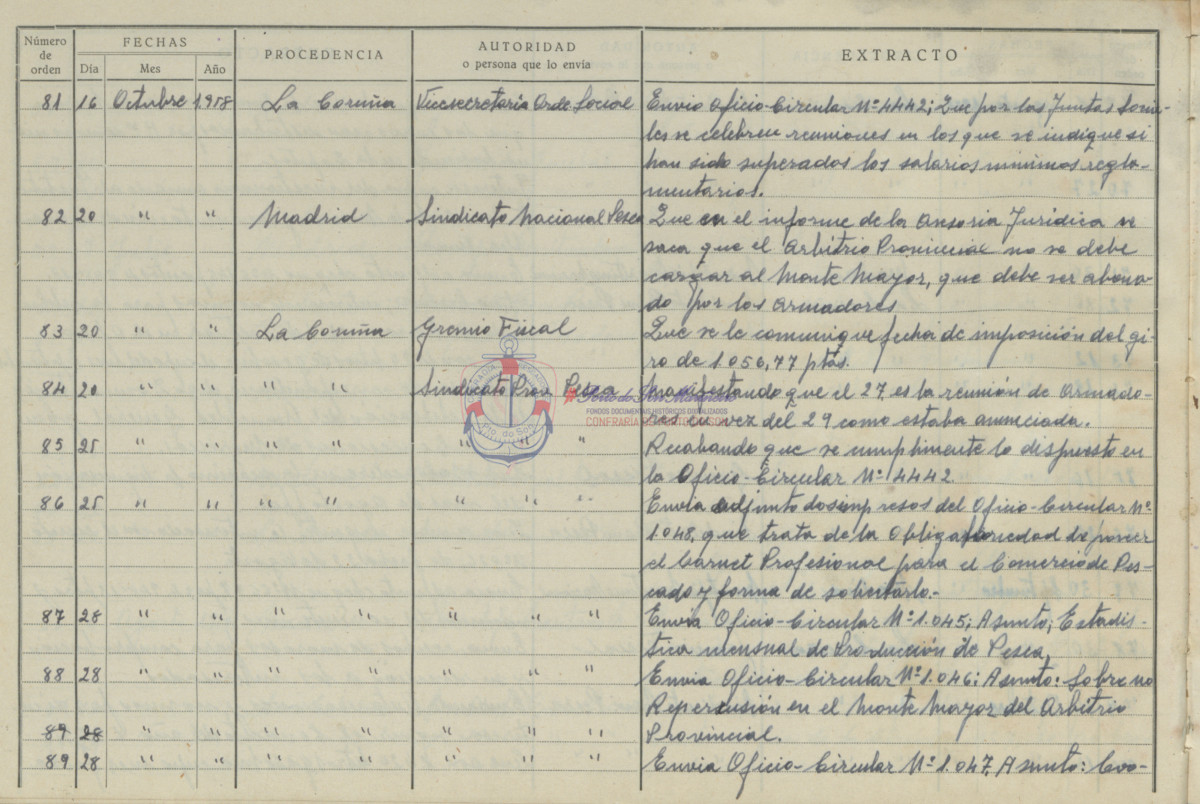 Número de orden FECHAS PROCEDENCIA AUTORIDAD o persona que lo envía EXTRACTO
Día Mes Año
81 16 Octubre 1.958 La Coruña Vicesecretaria Orde. Social Envio Oficio-Circular Nº 4442; Que por las Juntas Socia-
les se celebren reuniones en los que se indique si
han sido superados los salarios minimos regla-
mentarios.
82 20 " " Madrid Sindicato Nacional Pesca Que en el informe de la Ansoria Jurídica se
saca que el Arbitrio Provincial no se debe
cargar al Monte Mayor, que debe ser abona-
do por los Armadores
83 20 " " La Coruña Gremio Fiscal Que se le comunique fecha de imposición del gi-
ro de 1.056,77 ptas.
84 20 " " " " Sindicato Prov. Pesca Manifestando que el 27 es la reunión de Armado-
res en vez del 29 como estaba anunciada.
85 25 " " " " " " Recabando que se cumplimente lo dispuesto en
la Oficio-Circular Nº 4442.
86 25 " " " " " " " Envia adjunto dos impresos del Oficio-Circular Nº
1.048, que trata de la Obligatoriedad de poseer
el Carnet Profesional para el Comercio de Pes-
cado y forma de solicitarlo.-
87 28 " " " " " " " Envia Oficio-Circular Nº 1.045; Asunto; Estadis-
tica mensual de Producción de Pesca,
88 28 " " " " " " " Envia Oficio-Circular Nº 1.046: Asunto: Sobre no
Repercusión en el Monte Mayor del Arbitrio
89 28 " " " " " " " Provincial.
89 28 " " " " " " " Envia Oficio-Circular Nº 1.047, Asunto: Coo-
Pto. do Son
FONDOS DOCUMENTAIS HISTÓRICOS DIXITALIZADOS
CONFRARÍA DE PORTO DO SON